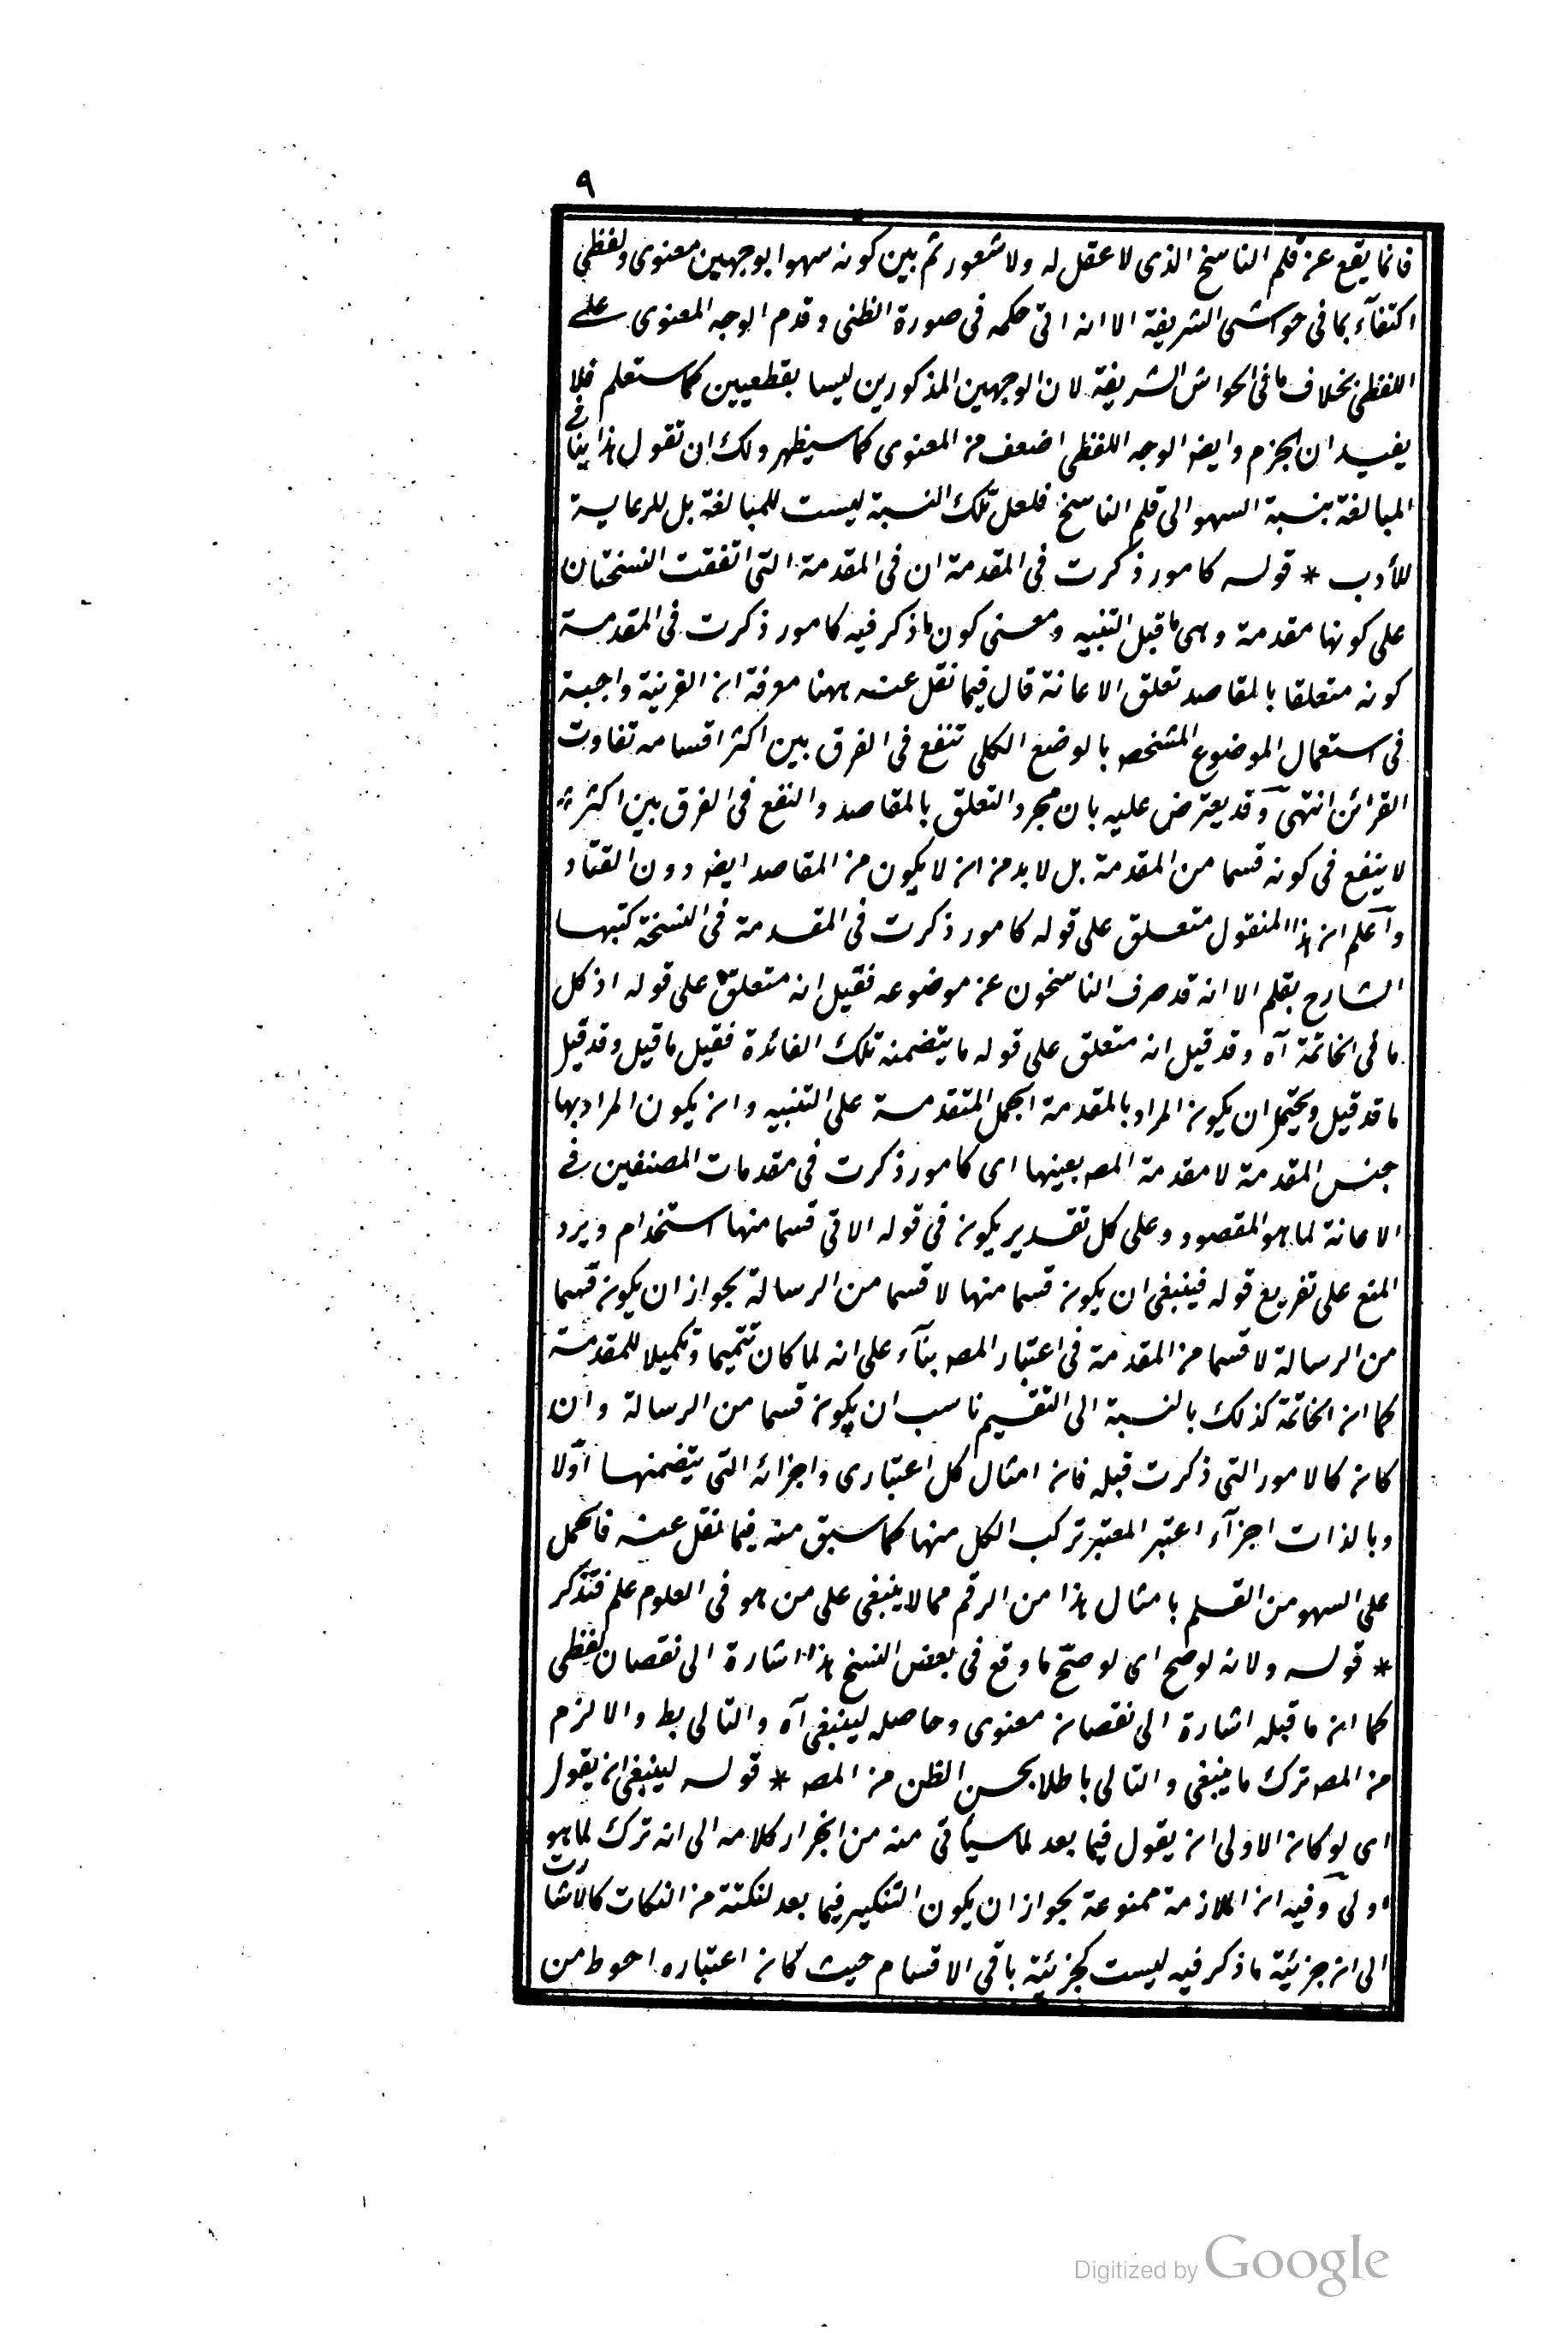 ٩
فانما يقع عن قلم الناسخ الذى لا عقل له ولا شعور ثم بين كونه سهوا بوجهين معنوى ولفظى
اكتفآء بما فى حواشى الشريفة الا انه اتى حكمه فى صورة الظنى وقدم الوجه المعنوى على
اللفظى بخلاف ما فى الحواش الشريفة لان الوجهين المذكورين ليسا بقطعيين كما ستعلم فلا
يفيدان الجزم وايضا الوجه اللفظى اضعف من المعنوى كما سيظهر ولك ان تقول هذا ينافى
المبالغة بنسبة السهو الى قلم الناسخ فلعل تلك النسبة ليست للمبالغة بل للرعاية
للأدب * قوله كامور ذكرت فى المقدمة ان فى المقدمة التى اتفقت النسختان
على كونها مقدمة وهى ما قبل التنبيه ومعنى كون ما ذكر فيه كامور ذكرت فى المقدمة
كونه متعلقا بالمقاصد تعلق الاعانة قال فيما نقل عنه ههنا معرفة ان القرينة واجبة
فى استعمال الموضوع المشخص بالوضع الكلى تنفع فى الفرق بين اكثر اقسامه تفاوت
القرائن انتهى وقد يعترض عليه بان مجرد التعلق بالمقاصد والنفع فى الفرق بين اكثره
لا ينفع فى كونه قسما من المقدمة بل لا بد من ان لا يكون من المقاصد ايضا ودون القتاد
وآعلم ان هذا المنقول متعلق على قوله كامور ذكرت فى المقدمة فى النسخة كتبها
الشارح بقلم الا انه قد صرف الناسخون عن موضوعه فقيل انه متعلق على قوله اذ كل
ما فى الخاتمة آه وقد قيل انه متعلق على قوله ما يتضمنه تلك الفائدة فقيل ما قيل وقد قيل
ما قد قيل ويحتمل ان يكون المراد بالمقدمة الجمل المتقدمة على التنبيه وان يكون المراد بها
جنس المقدمة لا مقدمة المص بعينها اى كامور ذكرت فى مقدمات المصنفين فى
الاعانة لما هو المقصود وعلى كل تقدير يكون فى قوله الاتى قسما منها استخدام ويرد
المنع على تفريع قوله فينبغى ان يكون قسما منها لا قسما من الرسالة بجواز ان يكون قسما
من الرسالة لا قسما من المقدمة فى اعتبار المص بنآء على انه لما كان تتميما وتكميلا للمقدمة
كما ان الخاتمة كذلك بالنسبة الى التقسيم ناسب ان يكون قسما من الرسالة وان
كان كالامور التى ذكرت قبله فان امثال كل اعتبارى واجزائه التى يتضمنها اوّلا
وبالذات اجزآء اعتبر المعتبر تركب الكل منها كما سبق منه فيما نقل عنه فالحمل
على السهو من القلم بامثال هذا من الرقم مما لا ينبغى على من هو فى العلوم علم فتذكر
* قوله ولانه لو صح اى لو صحّ ما وقع فى بعض النسخ هذا اشارة الى نقصان لفظى
كما ان ما قبله اشارة الى نقصان معنوى وحاصله لينبغى آه والتالى بط والا لزم
من المص ترك ما ينبغى والتالى باطل لحسن الظن من المص * قوله لينبغى ان يقول
اى لو كان الاولى ان يقول فيما بعد لما سيأتى منه من انجرار كلامه الى انه ترك لما هو
اولى وفيه ان الملازمة ممنوعة بجواز ان يكون التنكير فيما بعد لنكتة من النكات كالاشارت
الى ان جزئية ما ذكر فيه ليست كجزئية باقى الاقسام حيث كان اعتباره احوط من
Digitized by Google